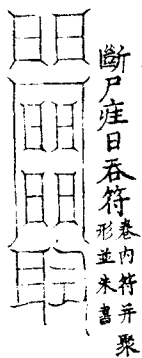 斷尸疰日吞符
卷内符并聚
形並朱書